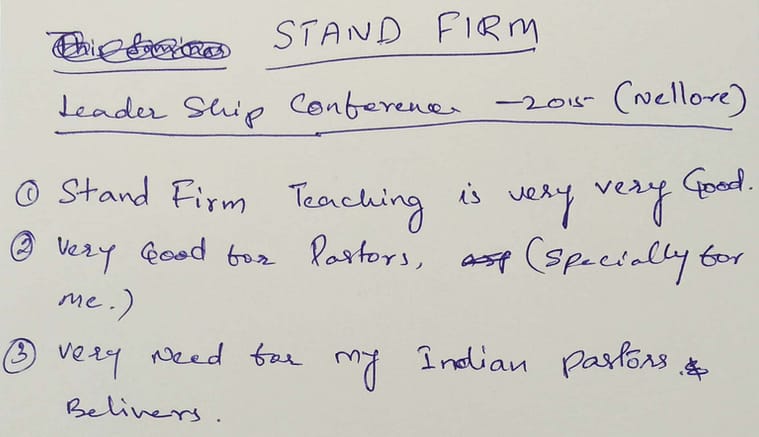 STAND FIRM
Leader Ship Conference - 2015 (Nellore)
① Stand Firm Teaching is very very Good.
② Very Good for Pastors, (Specially for
me.)
③ very Need for my Indian pastors &
Belivers.